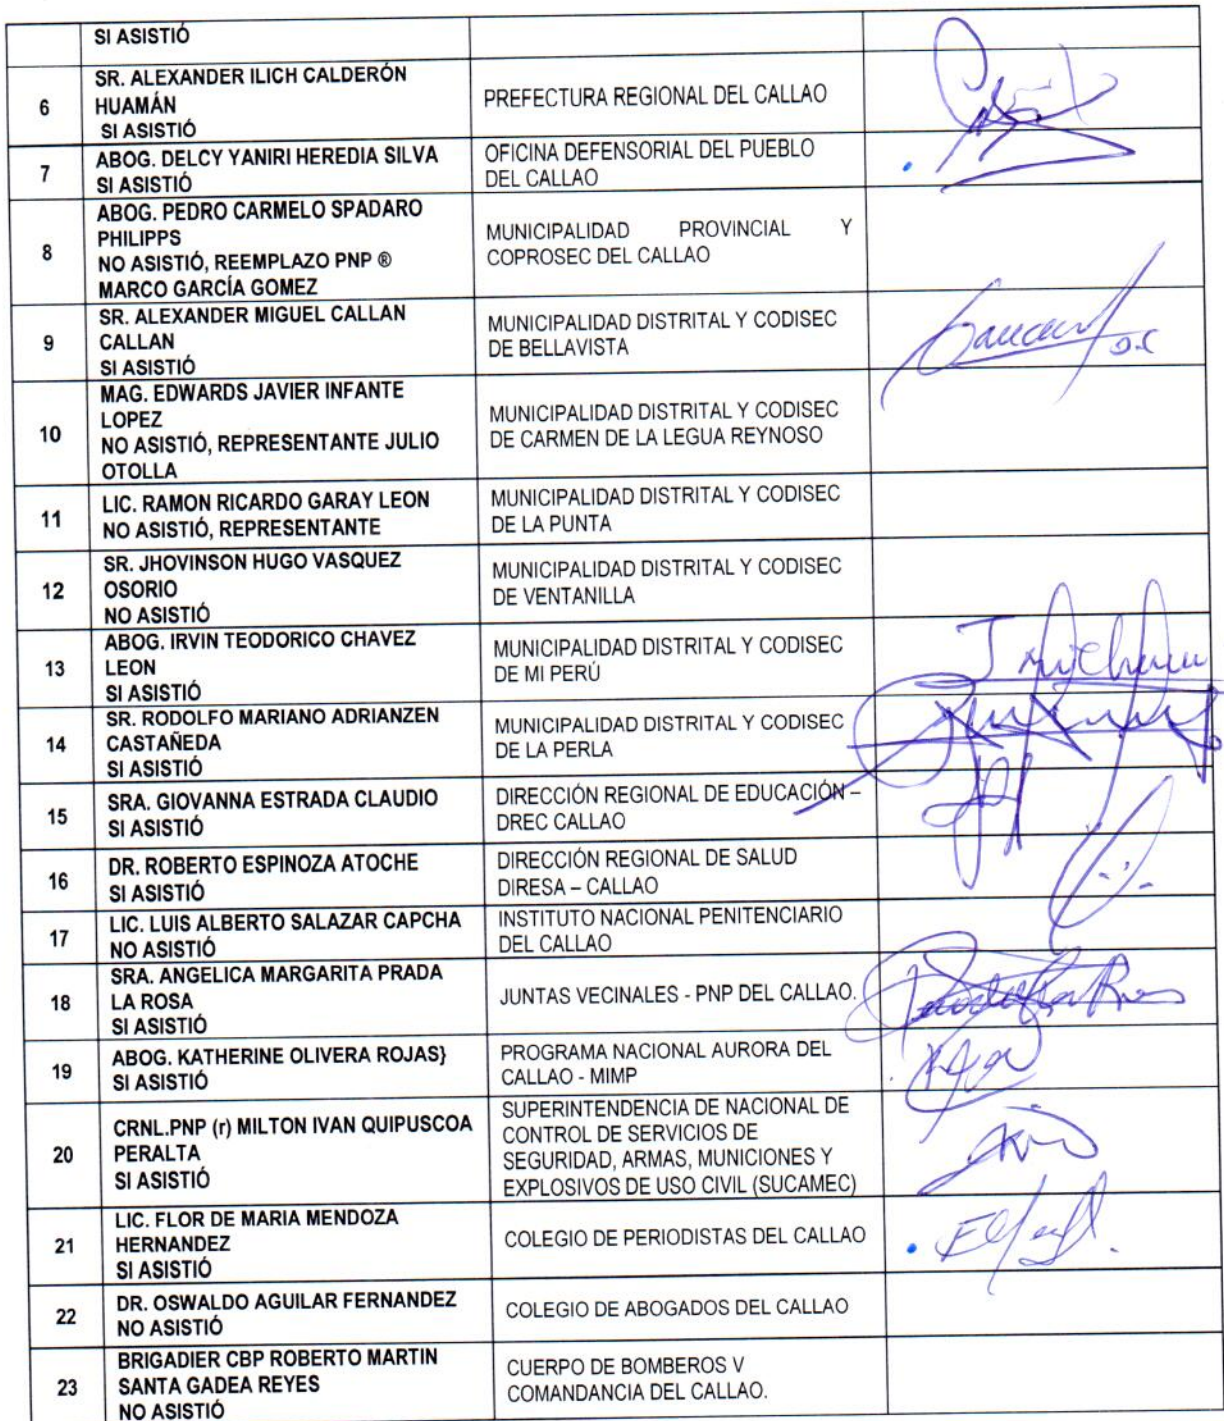 SI ASISTIÓ
6
SR. ALEXANDER ILICH CALDERÓN
HUAMÁN
SI ASISTIÓ
PREFECTURA REGIONAL DEL CALLAO
7
ABOG. DELCY YANIRI HEREDIA SILVA
SI ASISTIÓ
OFICINA DEFENSORIAL DEL PUEBLO
DEL CALLAO
8
ABOG. PEDRO CARMELO SPADARO
PHILIPPS
NO ASISTIÓ, REEMPLAZO PNP ®
MARCO GARCÍA GOMEZ
MUNICIPALIDAD PROVINCIAL Y
COPROSEC DEL CALLAO
9
SR. ALEXANDER MIGUEL CALLAN
CALLAN
SI ASISTIÓ
MUNICIPALIDAD DISTRITAL Y CODISEC
DE BELLAVISTA
10
MAG. EDWARDS JAVIER INFANTE
LOPEZ
NO ASISTIÓ, REPRESENTANTE JULIO
OTOLLA
MUNICIPALIDAD DISTRITAL Y CODISEC
DE CARMEN DE LA LEGUA REYNOSO
11
LIC. RAMON RICARDO GARAY LEON
NO ASISTIÓ, REPRESENTANTE
MUNICIPALIDAD DISTRITAL Y CODISEC
DE LA PUNTA
12
SR. JHOVINSON HUGO VASQUEZ
OSORIO
NO ASISTIÓ
MUNICIPALIDAD DISTRITAL Y CODISEC
DE VENTANILLA
13
ABOG. IRVIN TEODORICO CHAVEZ
LEON
SI ASISTIÓ
MUNICIPALIDAD DISTRITAL Y CODISEC
DE MI PERÚ
14
SR. RODOLFO MARIANO ADRIANZEN
CASTAÑEDA
SI ASISTIÓ
MUNICIPALIDAD DISTRITAL Y CODISEC
DE LA PERLA
15
SRA. GIOVANNA ESTRADA CLAUDIO
SI ASISTIÓ
DIRECCIÓN REGIONAL DE EDUCACIÓN –
DREC CALLAO
16
DR. ROBERTO ESPINOZA ATOCHE
SI ASISTIÓ
DIRECCIÓN REGIONAL DE SALUD
DIRESA – CALLAO
17
LIC. LUIS ALBERTO SALAZAR CAPCHA
NO ASISTIÓ
INSTITUTO NACIONAL PENITENCIARIO
DEL CALLAO
18
SRA. ANGELICA MARGARITA PRADA
LA ROSA
SI ASISTIÓ
JUNTAS VECINALES - PNP DEL CALLAO.
19
ABOG. KATHERINE OLIVERA ROJAS}
SI ASISTIÓ
PROGRAMA NACIONAL AURORA DEL
CALLAO - MIMP
20
CRNL.PNP (r) MILTON IVAN QUIPUSCOA
PERALTA
SI ASISTIÓ
SUPERINTENDENCIA DE NACIONAL DE
CONTROL DE SERVICIOS DE
SEGURIDAD, ARMAS, MUNICIONES Y
EXPLOSIVOS DE USO CIVIL (SUCAMEC)
21
LIC. FLOR DE MARIA MENDOZA
HERNANDEZ
SI ASISTIÓ
COLEGIO DE PERIODISTAS DEL CALLAO
22
DR. OSWALDO AGUILAR FERNANDEZ
NO ASISTIÓ
COLEGIO DE ABOGADOS DEL CALLAO
23
BRIGADIER CBP ROBERTO MARTIN
SANTA GADEA REYES
NO ASISTIÓ
CUERPO DE BOMBEROS V
COMANDANCIA DEL CALLAO.